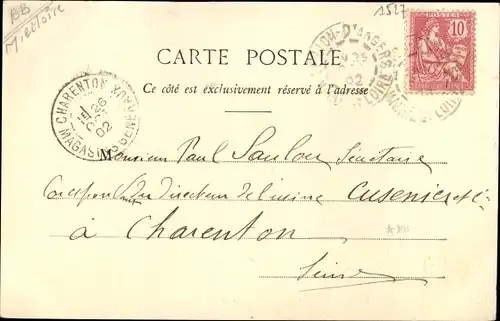 BB
1527
CARTE POSTALE
POSTES 10
Ce côté est exclusivement réservé à l'adresse
CHARENTON MAGASINS GENERAUX
26
02
Monsieur Paul Saulou Secrétaire
Correspondant du Directeur de l'usine Cusenier et Cie
à Charenton
Seine